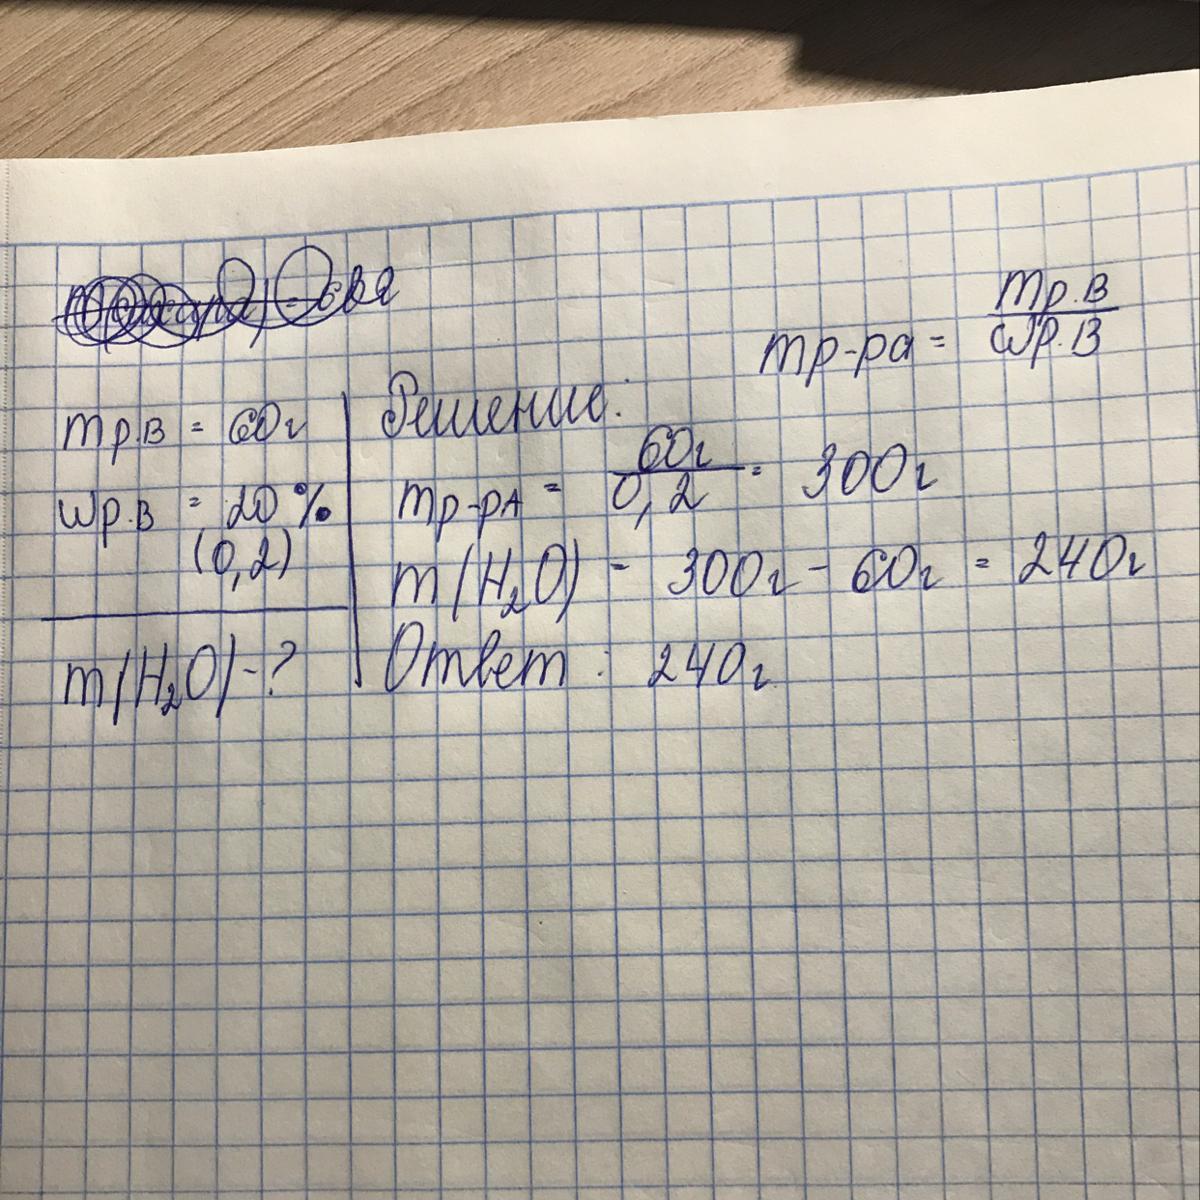 mр-ра = mр.в / ωр.в
mр.в = 60г
ωр.в = 20%
(0,2)
m(H₂O) - ?
Решение:
mр-ра = 60г / 0,2 = 300г
m(H₂O) = 300г - 60г = 240г
Ответ: 240г